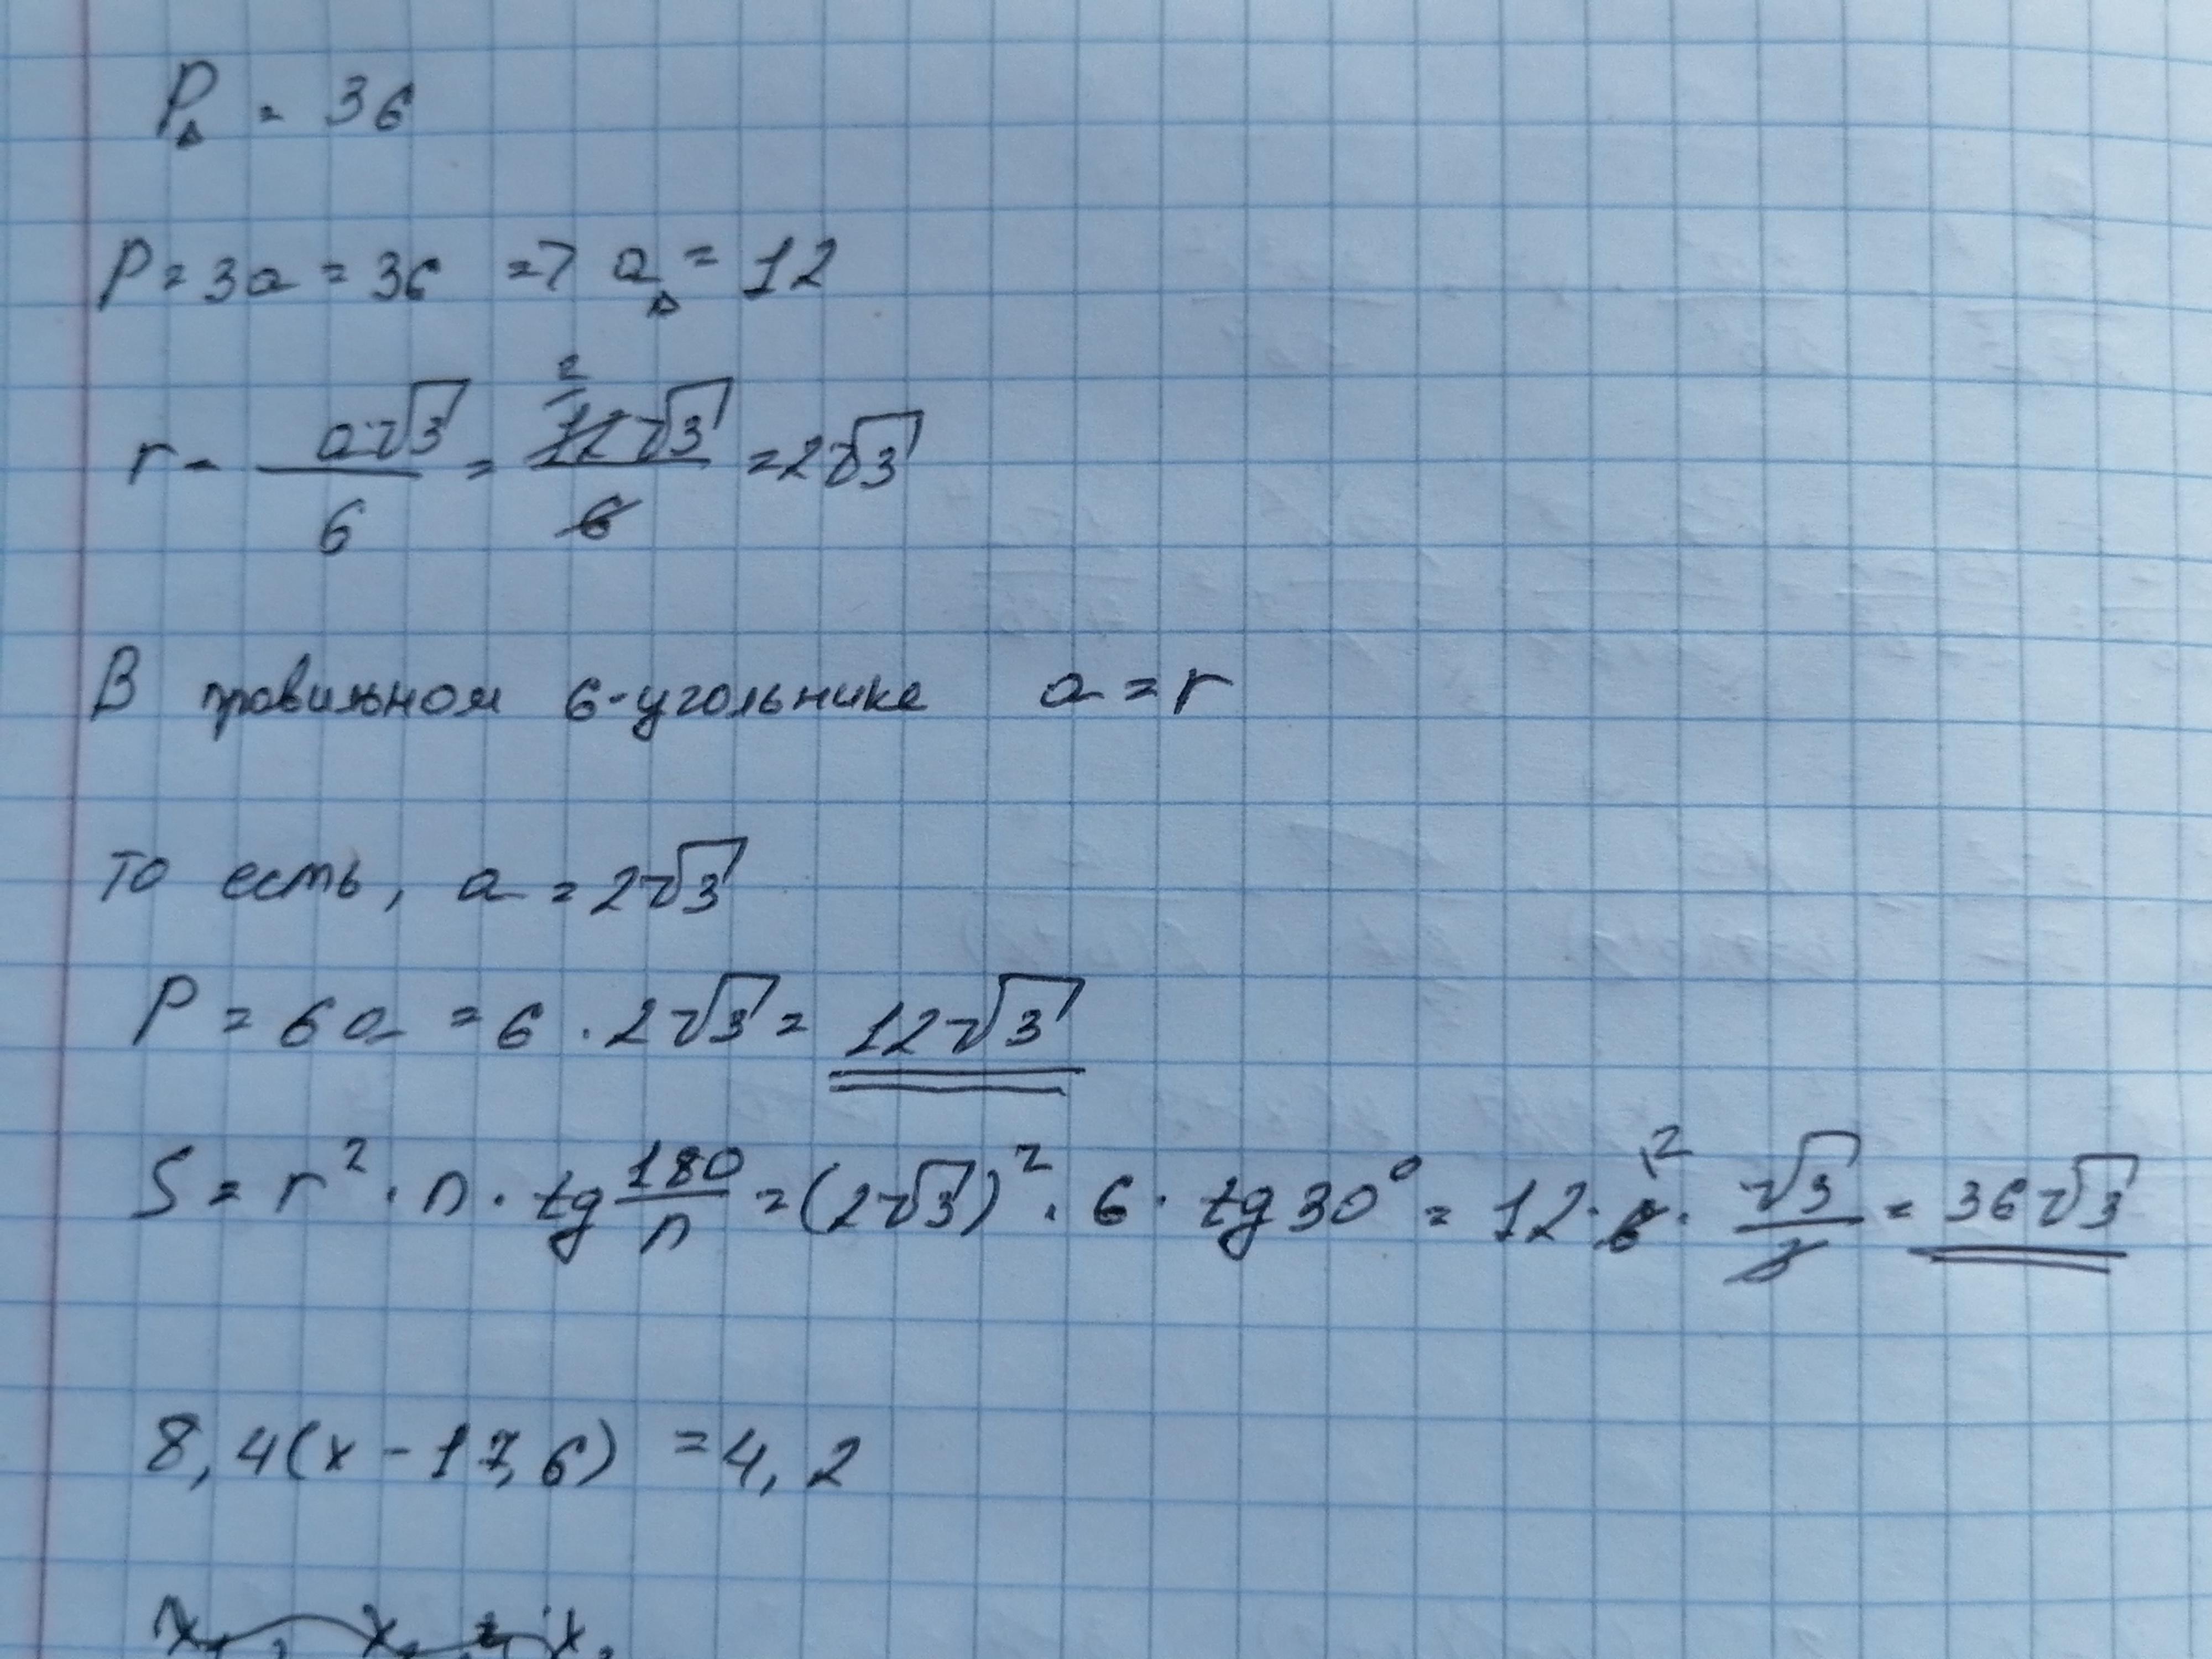 P△ = 36
P = 3a = 36 => a△ = 12
r = a√3/6 = 12√3/6 = 2√3
В правильном 6-угольнике a = r
то есть, a = 2√3
P = 6a = 6 · 2√3 = 12√3
S = r² · n · tg 180/n = (2√3)² · 6 · tg 30° = 12 · 6 · √3/3 = 36√3
8,4(x - 17,6) = 4,2